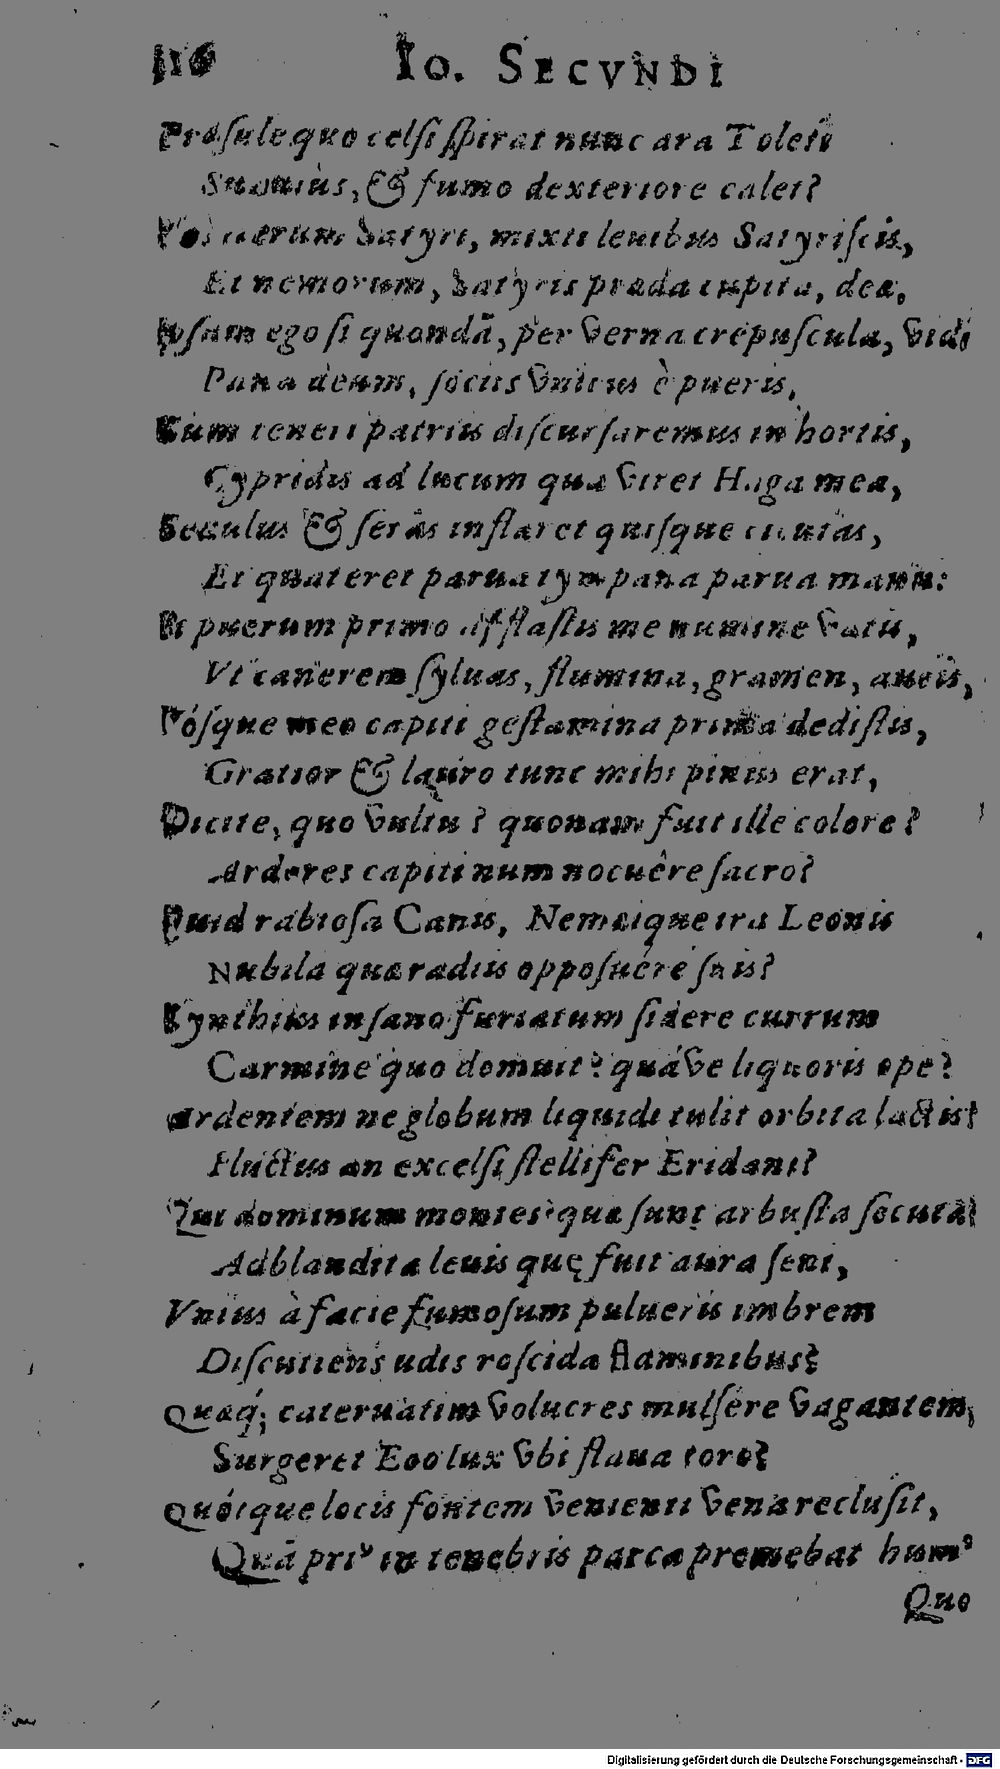 116 Io. SECVNDI
Præsule quo celsi spirat nunc ara Toleti
Suauiùs, & fumo dexteriore calet?
Vos iterum Satyri, mixti leuibus Satyriscis,
Et nemorum, Satyris præda cupita, deæ,
Ipsum ego si quondã, per verna crepuscula, vidi
Pana deum, sociis vnicus è pueris,
Cùm teneri patriis discursaremus in hortis,
Cypridis ad lucum quà viret Haga meæ,
Seculus & seras inflaret quisque cicutas,
Et quateret parua tympana parua manu:
Si puerum primo afflastis me numine vatis,
Vt canerem syluas, flumina, gramen, aueis,
Vósque meo capiti gestamina prima dedistis,
Gratior & lauro tunc mihi pinus erat,
Dicite, quo vultu? quonam fuit ille colore?
Ardores capiti num nocuêre sacro?
Quid rabiosa Canis, Nemeique ira Leonis
Nubila quæ radiis opposuére suis?
Cynthius insano furiatum sidere currum
Carmine quo domuit? quáve liquoris ope?
Ardentem ne globum liquidi tulit orbita lactis?
Fluctus an excelsi stellifer Eridani?
Qui dominum montes? quæ sunt arbusta secuta?
Adblandita leuis quę fuit aura seni,
Vnius à facie fumosum pulueris imbrem
Discutiens udis roscida flaminibus?
Quæq; cateruatim volucres mulsére vagantem,
Surgeret Eoo lux vbi flaua toro?
Quótque locis fontem venienti vena reclusit,
Quã priꝰ in tenebris parca premebat humꝰ
Quo
Digitalisierung gefördert durch die Deutsche Forschungsgemeinschaft - DFG